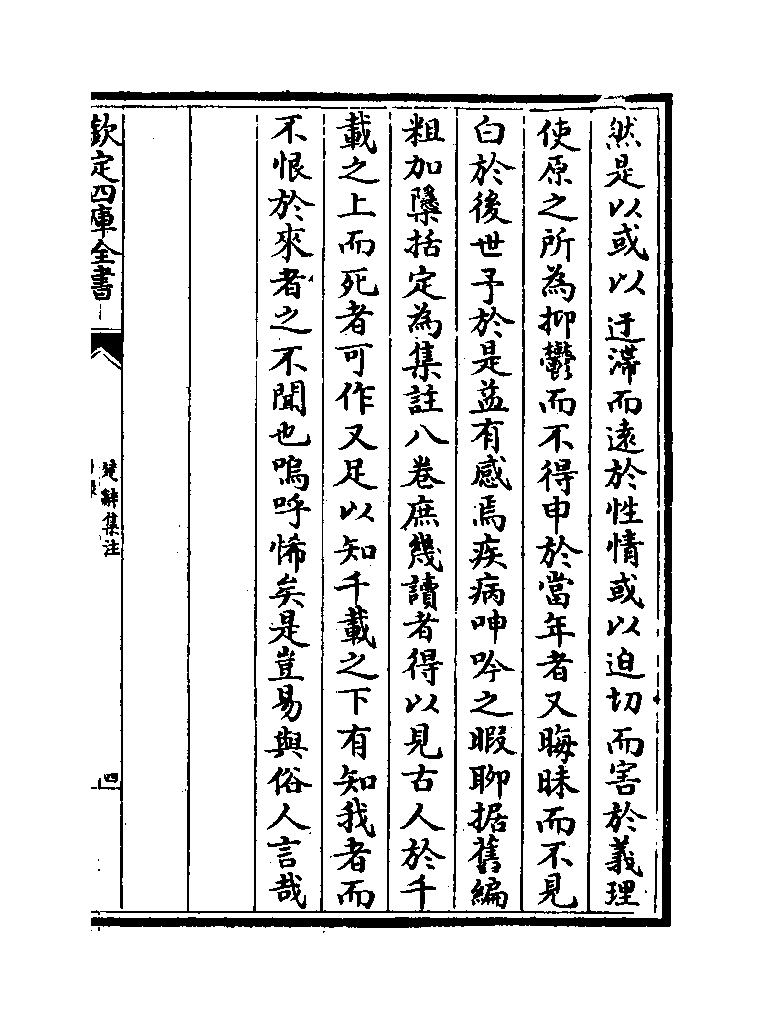 然是以或以迂滯而遠於性情或以迫切而害於義理
使原之所為抑鬱而不得申於當年者又晦昧而不見
白於後世予於是益有感焉疾病呻吟之暇聊据舊編
粗加檃括定為集註八卷庶幾讀者得以見古人於千
載之上而死者可作又足以知千載之下有知我者而
不恨於來者之不聞也嗚呼悕矣是豈易與俗人言哉
欽定四庫全書
楚辭集注
四